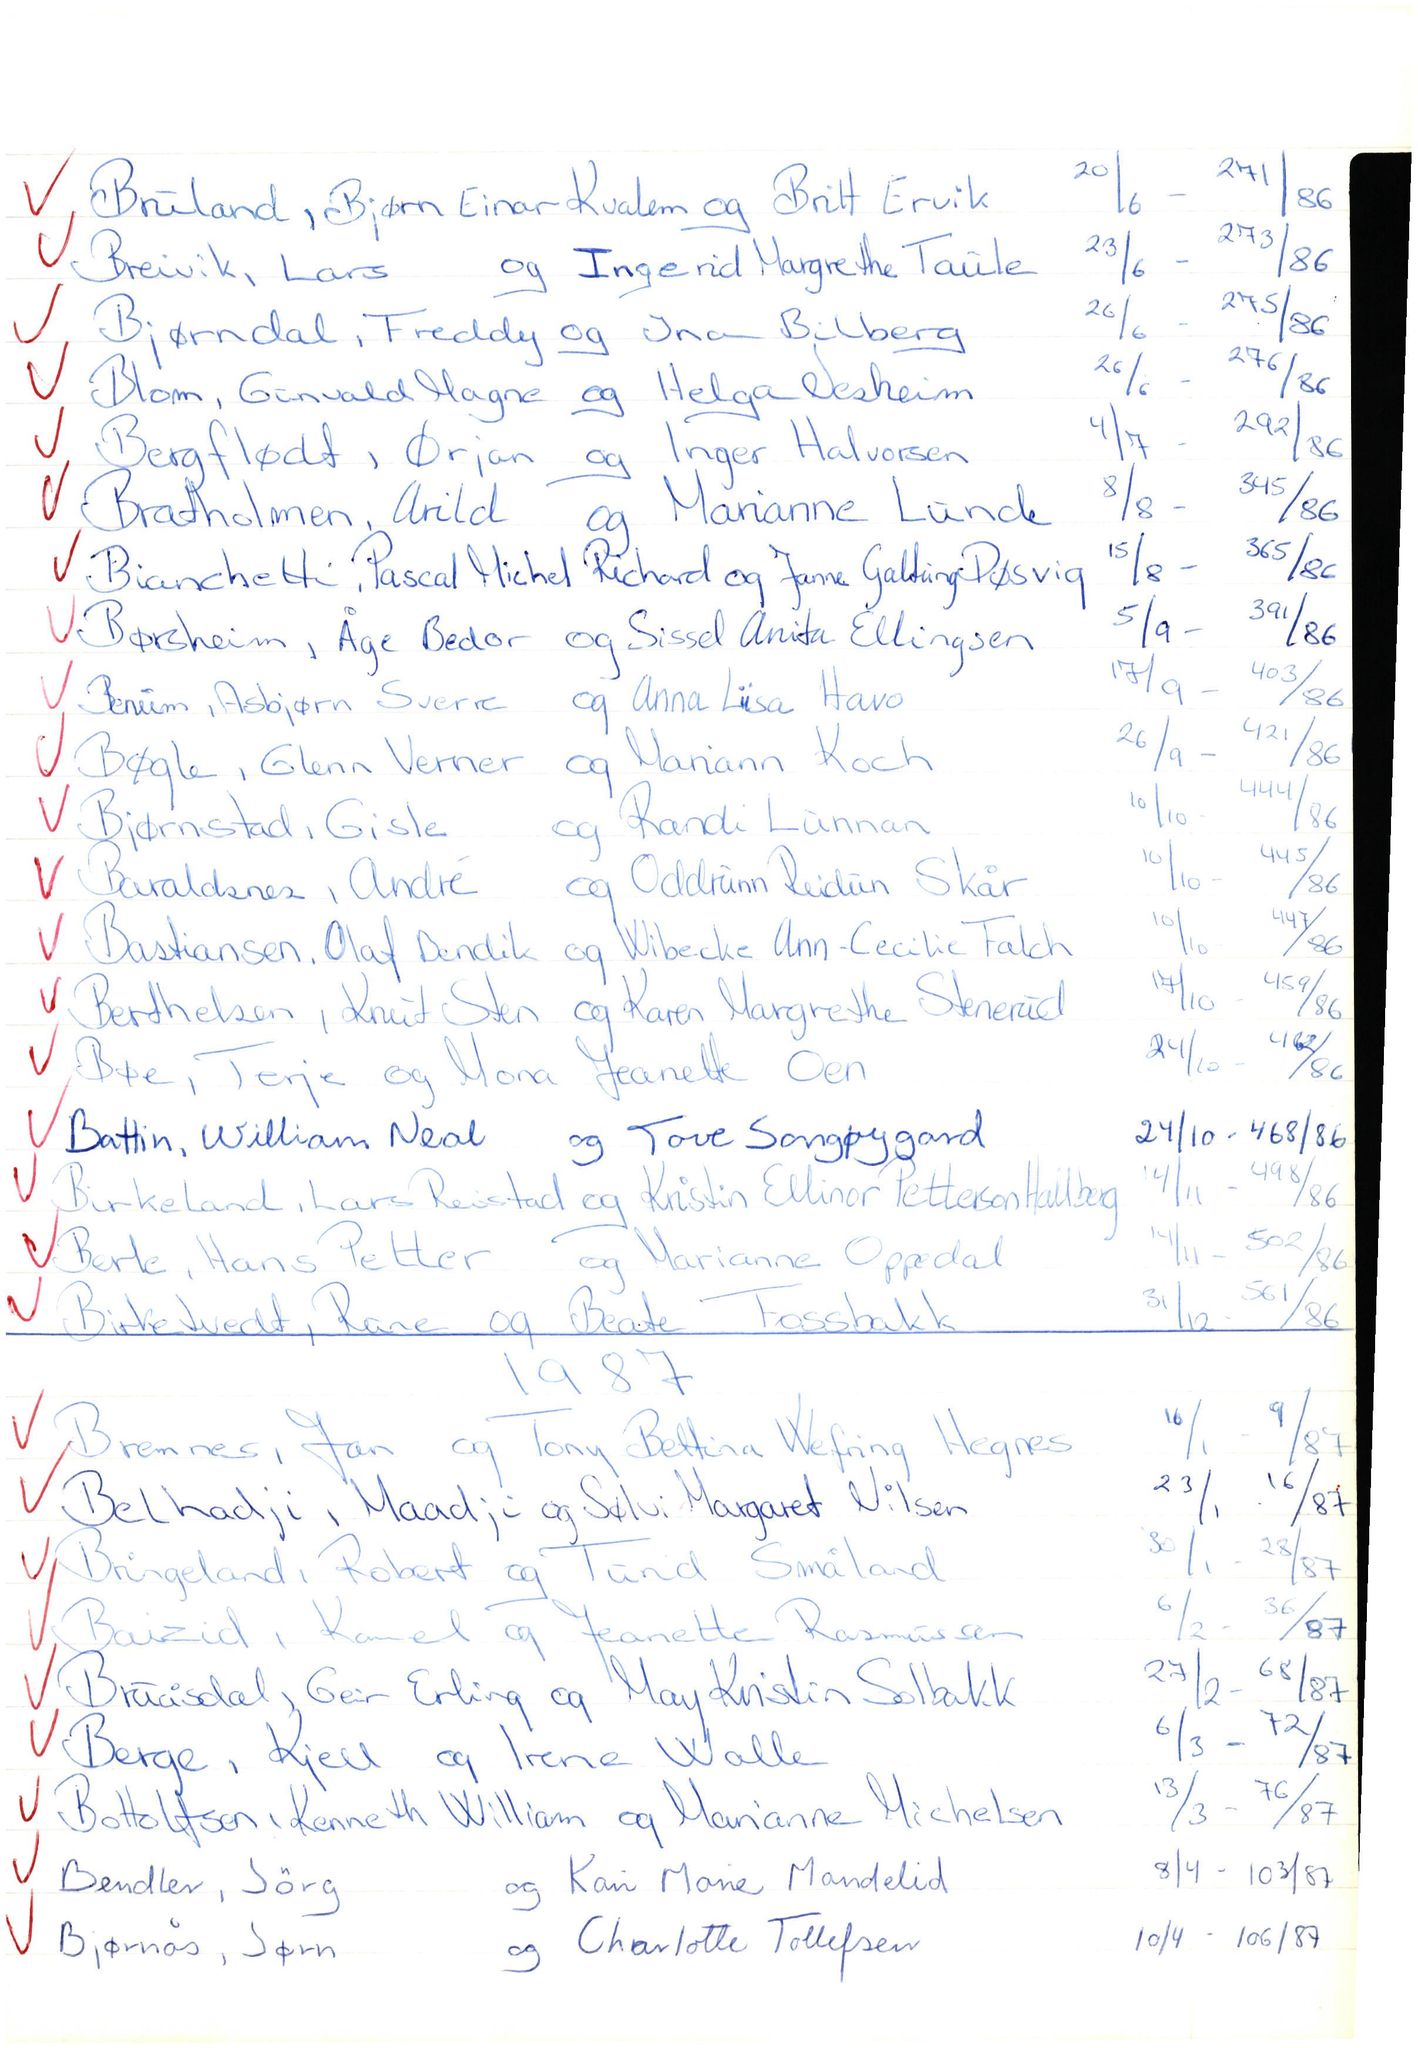 Bruland, Bjørn Einar Kvalem og Britt Ervik 20/6 - 271/86
Breivik, Lars og Ingerid Margrethe Taule 23/6 - 273/86
Bjørndal, Freddy og Ina Bilberg 26/6 - 275/86
Blom, Gunvald Magne og Helga Nesheim 26/6 - 276/86
Bergflødt, Ørjan og Inger Halvorsen 4/7 - 292/86
Bratholmen, Arild og Marianne Lunde 8/8 - 345/86
Bianchetti, Pascal Michel Richard og Janne Galtung Døsvig 15/8 - 365/86
Børsheim, Åge Bedor og Sissel Anita Ellingsen 5/9 - 391/86
Benum, Asbjørn Sverre og Anna Liisa Havo 17/9 - 403/86
Bøgle, Glenn Verner og Mariann Koch 26/9 - 421/86
Bjørnstad, Gisle og Randi Lunnan 10/10 - 444/86
Baraldsnes, André og Oddrunn Reidun Skår 10/10 - 445/86
Bastiansen, Olaf Bendik og Wibecke Ann-Cecilie Falch 10/10 - 447/86
Berthelsen, Knut Sten og Karen Margrethe Stenerud 17/10 - 459/86
Bøe, Terje og Mona Jeanette Oen 24/10 - /86
Battin, William Neal og Tove Songøygard 24/10 - 468/86
Birkeland, Lars Reistad og Kristin Ellinor Petterson Hallberg 14/11 - 498/86
Berle, Hans Petter og Marianne Oppedal 14/11 - 502/86
Birketvedt, Rane og Beate Fossbakk 31/12 - 561/86
1987
Bremnes, Jan og Tony Bettina Wefring Hegnes 16/1 - 9/87
Belhadji, Maadji og Sølvi Margaret Nilsen 23/1 16/87
Bringeland, Robert og Turid Småland 30/1 - 28/87
Baizid, Kamel og Jeanette Rasmussen 6/2 - 36/87
Bruåsdal, Geir Erling og May Kristin Solbakk 27/2 - 68/87
Berge, Kjell og Irene Walle 6/3 - 72/87
Bottolfsen, Kenneth William og Marianne Michelsen 13/3 - 76/87
Bendler, Jörg og Kari Marie Mandelid 8/4 - 103/87
Bjørnås, Jørn og Charlotte Tollefsen 10/4 - 106/87